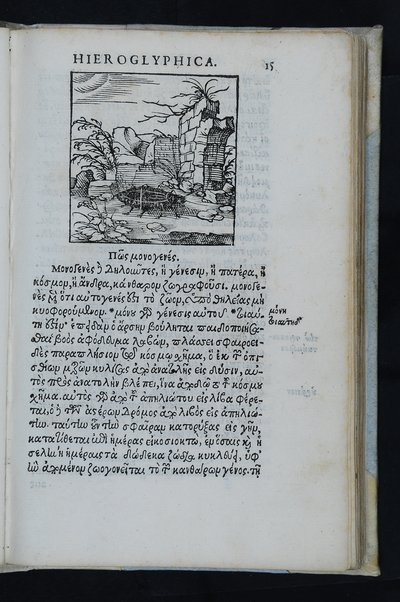 HIEROGLYPHICA. 15
Πῶς μονογενές.
Μονογενὲς δὲ δηλοῦντες, ἢ γένεσιν, ἢ πατέρα, ἢ
κόσμον, ἢ ἄνδρα, κάνθαρον ζωγραφοῦσι. μονογε-
νὲς μὲν ὅτι αὐτογενές ἐστι τὸ ζῶον, ὑπὸ θηλείας μὴ
κυοφορούμενον. *μόνη γὰρ γένεσις αὐτοῦ *τοιαύ-
τη ἐστίν. ἐπειδὰν ὁ ἄρσην βούληται παιδοποιήσα-
σθαι βοὸς ἀφόδευμα λαβὼν, πλάσσει σφαιροει-
δὲς παραπλήσιον τῷ κόσμῳ σχῆμα, ὃ ἐκ τῶν ὀπι-
σθίων μερῶν κυλίσας ἀπὸ ἀνατολῆς εἰς δύσιν, αὐ-
τὸς πρὸς ἀνατολὴν βλέπει, ἵνα ἀποδῷ τὸ τοῦ κόσμου
σχῆμα. αὐτὸς γὰρ ἀπὸ τοῦ ἀπηλιώτου εἰς λίβα φέρε-
ται, ὁ δὲ τῶν ἀστέρων δρόμος ἀπὸ λιβὸς εἰς ἀπηλιώ-
την. ταύτην οὖν τὴν σφαῖραν κατορύξας εἰς γῆν,
κατατίθεται ἐπὶ ἡμέρας εἰκοσιοκτὼ, ἐν ὅσαις καὶ ἡ
σελήνη ἡμέραις τὰ δώδεκα ζώδια κυκλεύει, ὑφ'
ἣν ἀπομένον ζωογονεῖται τὸ τῶν κανθάρων γένος. τῇ
μόνη